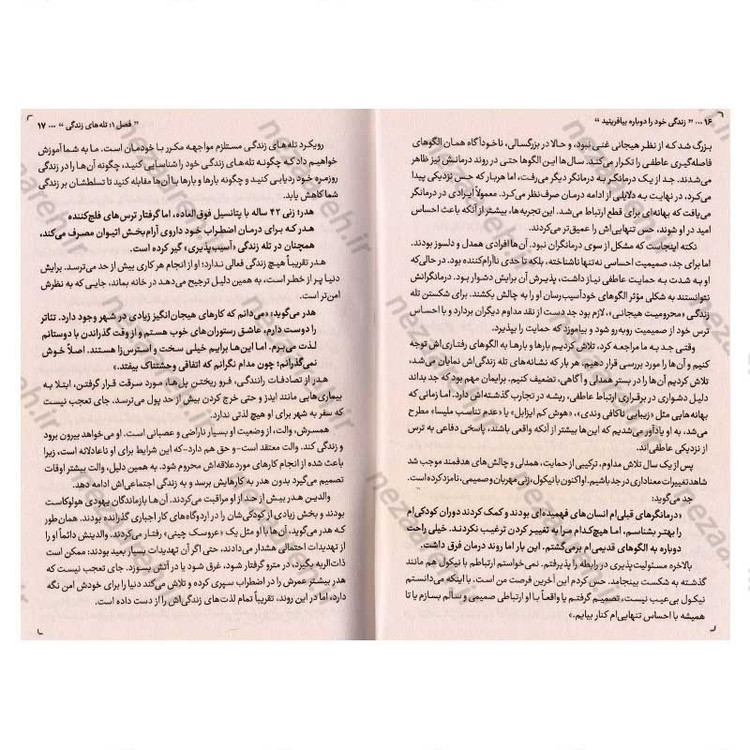 ۱۶ ... " زندگی خود را دوباره بیافرینید "
بزرگ شد که از نظر هیجانی غنی نبود، و حالا در بزرگسالی، ناخودآگاه همان الگوهای
فاصله‌گیری عاطفی را تکرار می‌کند. سال‌ها این الگوها حتی در روند درمانش نیز ظاهر
می‌شدند. جد از یک درمانگر به درمانگر دیگر می‌رفت، اما هربار که حس نزدیکی پیدا
می‌کرد، در نهایت به دلایلی از ادامه درمان صرف‌نظر می‌کرد. معمولاً ایرادی در درمانگر
می‌یافت که بهانه‌ای برای قطع ارتباط می‌شد. این تجربه‌ها، بیشتر از آنکه باعث احساس
امید در او شوند، حس تنهایی‌اش را عمیق‌تر می‌کردند.
نکته اینجاست که مشکل از سوی درمانگران نبود. آن‌ها افرادی همدل و دلسوز بودند.
اما برای جد، صمیمیت احساسی نه‌تنها ناشناخته، بلکه تا حدی ناآرام‌کننده بود. در حالی‌که
او به شدت به حمایت عاطفی نیاز داشت، پذیرش آن برایش دشوار بود. درمانگرانش
نتوانستند به شکلی مؤثر الگوهای خودآسیب‌رسان او را به چالش بکشند. برای شکستن تله
زندگی «محرومیت هیجانی»، لازم بود جد دست از نقد مداوم دیگران بردارد و با احساس
ترس خود از صمیمیت روبه‌رو شود و بیاموزد که حمایت را بپذیرد.
وقتی جد به ما مراجعه کرد، تلاش کردیم بارها و بارها به الگوهای رفتاری‌اش توجه
کنیم و آن‌ها را مورد بررسی قرار دهیم. هر بار که نشانه‌های تله زندگی‌اش نمایان می‌شد،
تلاش کردیم آن‌ها را در بستر همدلی و آگاهی، تضعیف کنیم. برایمان مهم بود که جد بداند
دلیل دشواری در برقراری ارتباط عاطفی، ریشه در تجارب گذشته‌اش دارد. اما زمانی که
بهانه‌هایی مثل «زیبایی ناکافی وندی»، «هوش کم ایزابل» یا «عدم تناسب ملیسا» مطرح
می‌شد، به او یادآور می‌شدیم که این‌ها بیشتر از آنکه واقعی باشند، پاسخی دفاعی به ترس
از نزدیکی عاطفی‌اند.
پس از یک سال تلاش مداوم، ترکیبی از حمایت، همدلی و چالش‌های هدفمند موجب شد
شاهد تغییرات معناداری در جد باشیم. او اکنون با نیکول، زنی مهربان و صمیمی، نامزد کرده است.
جد می‌گوید:
«درمانگرهای قبلی‌ام انسان‌های فهمیده‌ای بودند و کمک کردند دوران کودکی‌ام
را بهتر بشناسم، اما هیچ‌کدام مرا به تغییر کردن ترغیب نکردند. خیلی راحت
دوباره به الگوهای قدیمی‌ام برمی‌گشتم. این بار اما روند درمان فرق داشت.
بالاخره مسئولیت‌پذیری در رابطه را پذیرفتم. نمی‌خواستم ارتباطم با نیکول هم مانند
گذشته به شکست بینجامد. حس کردم این آخرین فرصت من است. با اینکه می‌دانستم
نیکول بی‌عیب نیست، تصمیم گرفتم یا واقعاً با او ارتباطی صمیمی و سالم بسازم یا تا
همیشه با احساس تنهایی‌ام کنار بیایم.»
" فصل ۱: تله‌های زندگی " ... ۱۷
رویکرد تله‌های زندگی مستلزم مواجهه مکرر با خودمان است. ما به شما آموزش
خواهیم داد که چگونه تله‌های زندگی خود را شناسایی کنید، چگونه آن‌ها را در زندگی
روزمره خود ردیابی کنید و چگونه بارها و بارها با آن‌ها مقابله کنید تا تسلطشان بر زندگی
شما کاهش یابد.
هدر: زنی ۴۲ ساله با پتانسیل فوق‌العاده، اما گرفتار ترس‌های فلج‌کننده
هدر که برای درمان اضطراب خود داروی آرام‌بخش اتیوان مصرف می‌کند،
همچنان در تله زندگی «آسیب‌پذیری» گیر کرده است.
هدر تقریباً هیچ زندگی فعالی ندارد؛ او از انجام هر کاری بیش از حد می‌ترسد. برایش
دنیا پر از خطر است، به همین دلیل ترجیح می‌دهد در خانه بماند، جایی که به نظرش
امن‌تر است.
هدر می‌گوید: «می‌دانم که کارهای هیجان‌انگیز زیادی در شهر وجود دارد. تئاتر
را دوست دارم، عاشق رستوران‌های خوب هستم و از وقت گذراندن با دوستانم
لذت می‌برم. اما این‌ها برایم خیلی سخت و استرس‌زا هستند. اصلاً خوش
نمی‌گذرانم؛ چون مدام نگرانم که اتفاقی وحشتناک بیفتد.»
هدر از تصادفات رانندگی، فرو ریختن پل‌ها، مورد سرقت قرار گرفتن، ابتلا به
بیماری‌هایی مانند ایدز و حتی خرج کردن بیش از حد پول می‌ترسد. جای تعجب نیست
که سفر به شهر برای او هیچ لذتی ندارد.
همسرش، والت، از وضعیت او بسیار ناراضی و عصبانی است. او می‌خواهد بیرون برود
و زندگی کند. والت معتقد است-و حق هم دارد-که این شرایط برای او ناعادلانه است، زیرا
باعث شده از انجام کارهای موردعلاقه‌اش محروم شود. به همین دلیل، والت بیشتر اوقات
تصمیم می‌گیرد بدون هدر به کارهایش برسد و به زندگی اجتماعی‌اش ادامه دهد.
والدین هدر بیش از حد از او مراقبت می‌کردند. آن‌ها بازماندگان یهودی هولوکاست
بودند و بخش زیادی از کودکی‌شان را در اردوگاه‌های کار اجباری گذرانده بودند. همان‌طور
که هدر می‌گوید، آن‌ها با او مثل یک «عروسک چینی» رفتار می‌کردند. والدینش دائماً او را
از تهدیدات احتمالی هشدار می‌دادند، حتی اگر آن تهدیدات بسیار بعید بودند: ممکن است
ذات‌الریه بگیرد، در مترو گرفتار شود، غرق شود یا در آتش بسوزد. جای تعجب نیست که
هدر بیشتر عمرش را در اضطراب سپری کرده و تلاش می‌کند دنیا را برای خودش امن نگه
دارد، اما در این روند، تقریباً تمام لذت‌های زندگی‌اش را از دست داده است.
nezareh.ir